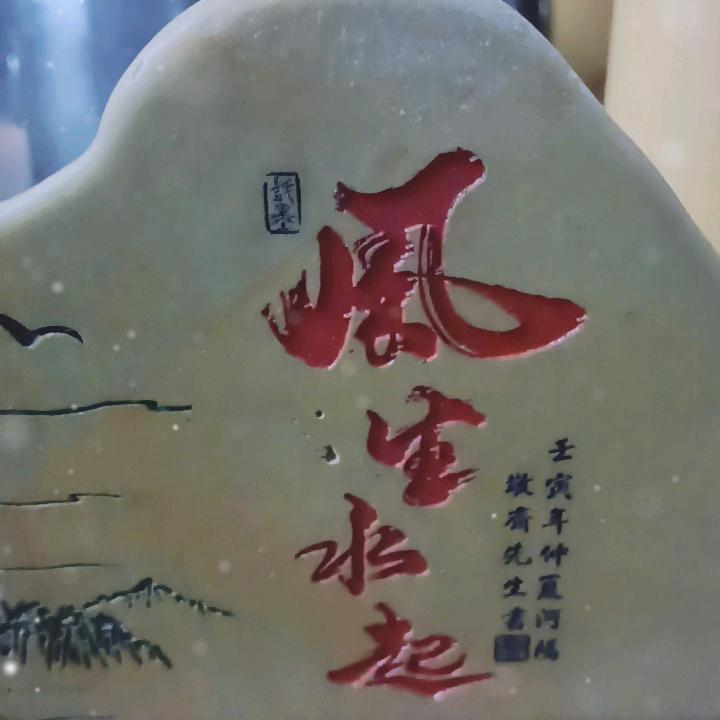 風生水起
壬寅年仲夏河陽
墩齋先生書